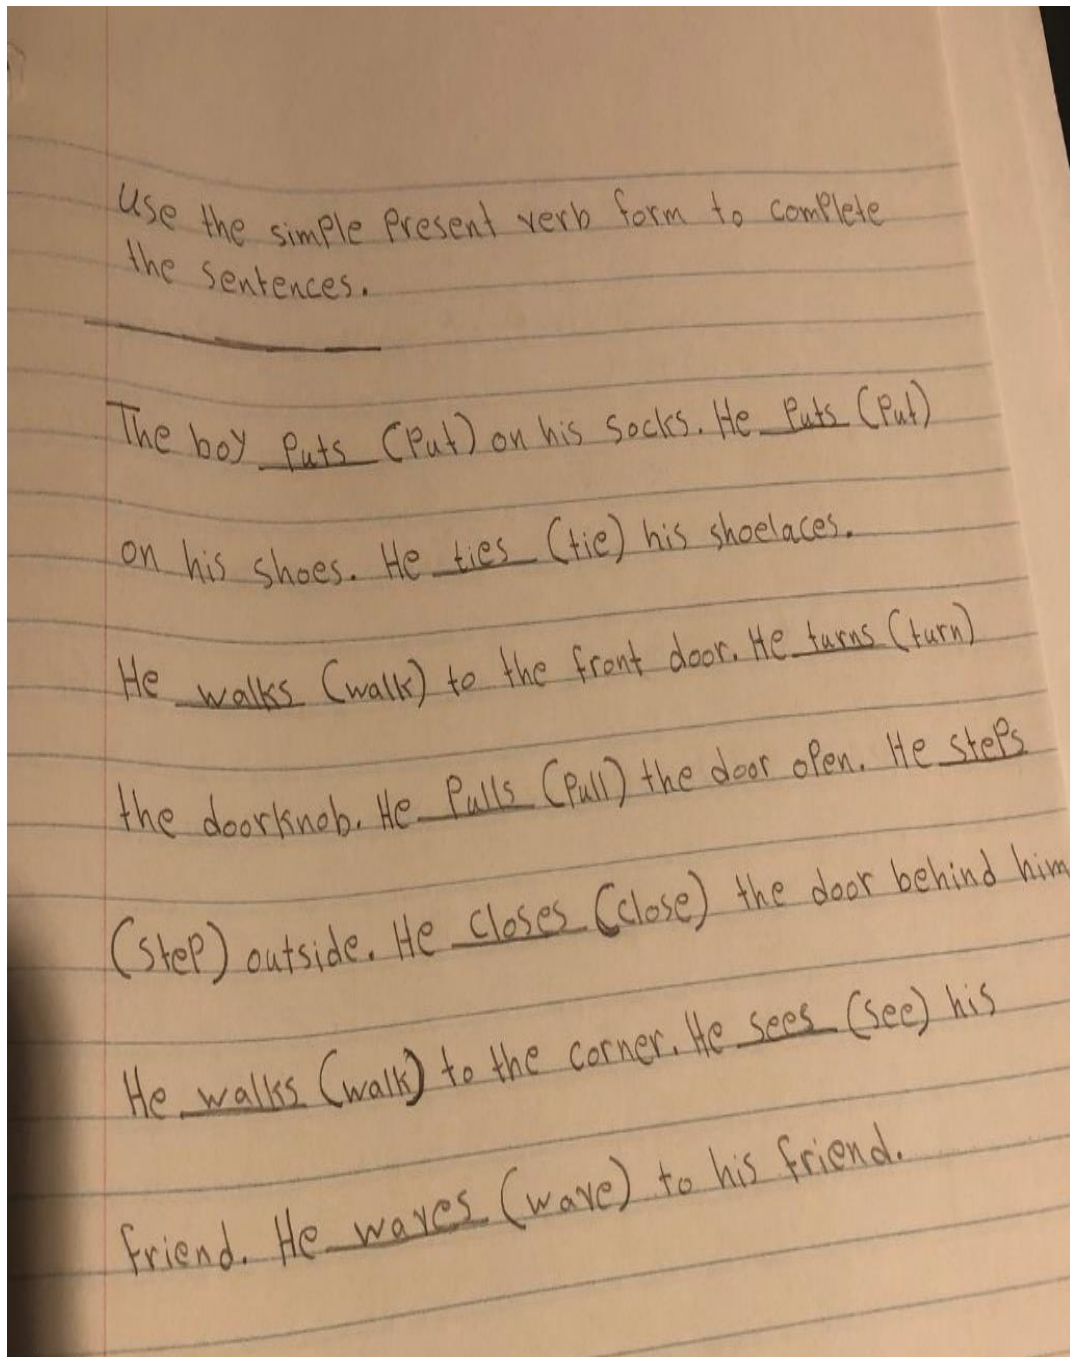 Use the simple Present verb form to complete
the sentences.
The boy Puts (Put) on his socks. He Puts (Put)
on his shoes. He ties (tie) his shoelaces.
He walks (walk) to the front door. He turns (turn)
the doorknob. He Pulls (Pull) the door open. He steps
(step) outside. He closes (close) the door behind him
He walks (walk) to the corner. He sees (see) his
friend. He waves (wave) to his friend.